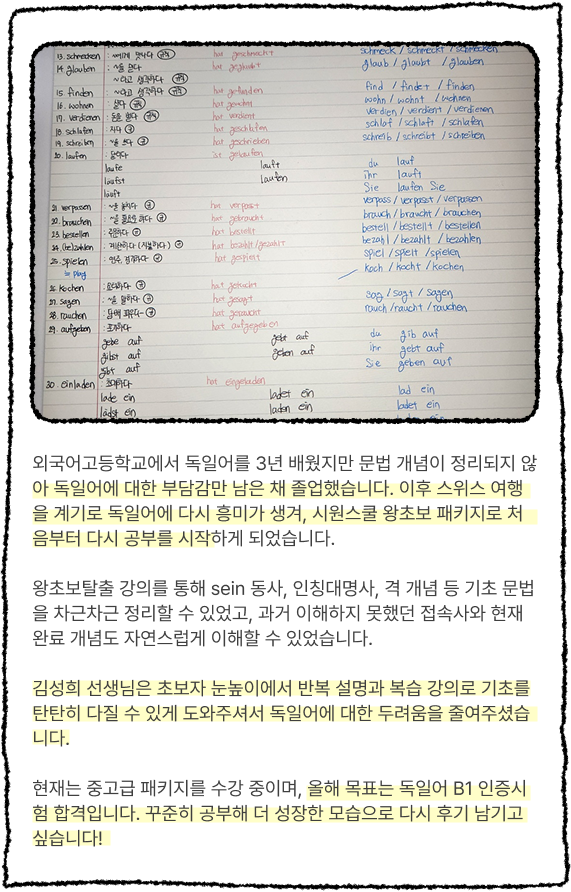 13. schmecken : ~에게 맛나다 hat geschmeckt schmeck / schmeckt / schmecken
14. glauben : ~을 믿다 hat geglaubt glaub / glaubt / glauben
~라고 생각하다
15. finden : ~라고 생각하다 hat gefunden find / findet / finden
16. wohnen : 살다 hat gewohnt wohn / wohnt / wohnen
17. verdienen : 돈을 벌다 hat verdient verdien / verdient / verdienen
18. schlafen : 자다 hat geschlafen schlaf / schlaft / schlafen
19. schreiben : ~을 쓰다 hat geschrieben schreib / schreibt / schreiben
20. laufen : 달리다 ist gelaufen
laufe lauft du lauf
läufst laufen ihr lauft
läuft Sie laufen Sie
21. verpassen : ~을 놓치다 hat verpasst verpass / verpasst / verpassen
22. brauchen : ~을 필요로 하다 hat gebraucht brauch / braucht / brauchen
23. bestellen : 주문하다 hat bestellt bestell / bestellt / bestellen
24. (be)zahlen : 계산하다 (지불하다) hat bezahlt/gezahlt bezahl / bezahlt / bezahlen
25. spielen hat gespielt spiel / spielt / spielen
= play koch / kocht / kochen
26. kochen : 요리하다 hat gekocht
27. sagen : ~을 말하다 hat gesagt sag / sagt / sagen
28. rauchen : 담배 피우다 hat geraucht rauch / raucht / rauchen
29. aufgeben : 포기하다 hat aufgegeben
gebe auf gebt auf du gib auf
gibst auf geben auf ihr gebt auf
gibt auf Sie geben auf
30. einladen : 초대하다 hat eingeladen
lade ein ladet ein lad ein
lädst ein laden ein ladet ein
외국어고등학교에서 독일어를 3년 배웠지만 문법 개념이 정리되지 않
아 독일어에 대한 부담감만 남은 채 졸업했습니다. 이후 스위스 여행
을 계기로 독일어에 다시 흥미가 생겨, 시원스쿨 왕초보 패키지로 처
음부터 다시 공부를 시작하게 되었습니다.
왕초보탈출 강의를 통해 sein 동사, 인칭대명사, 격 개념 등 기초 문법
을 차근차근 정리할 수 있었고, 과거 이해하지 못했던 접속사와 현재
완료 개념도 자연스럽게 이해할 수 있었습니다.
김성희 선생님은 초보자 눈높이에서 반복 설명과 복습 강의로 기초를
탄탄히 다질 수 있게 도와주셔서 독일어에 대한 두려움을 줄여주셨습
니다.
현재는 중고급 패키지를 수강 중이며, 올해 목표는 독일어 B1 인증시
험 합격입니다. 꾸준히 공부해 더 성장한 모습으로 다시 후기 남기고
싶습니다!